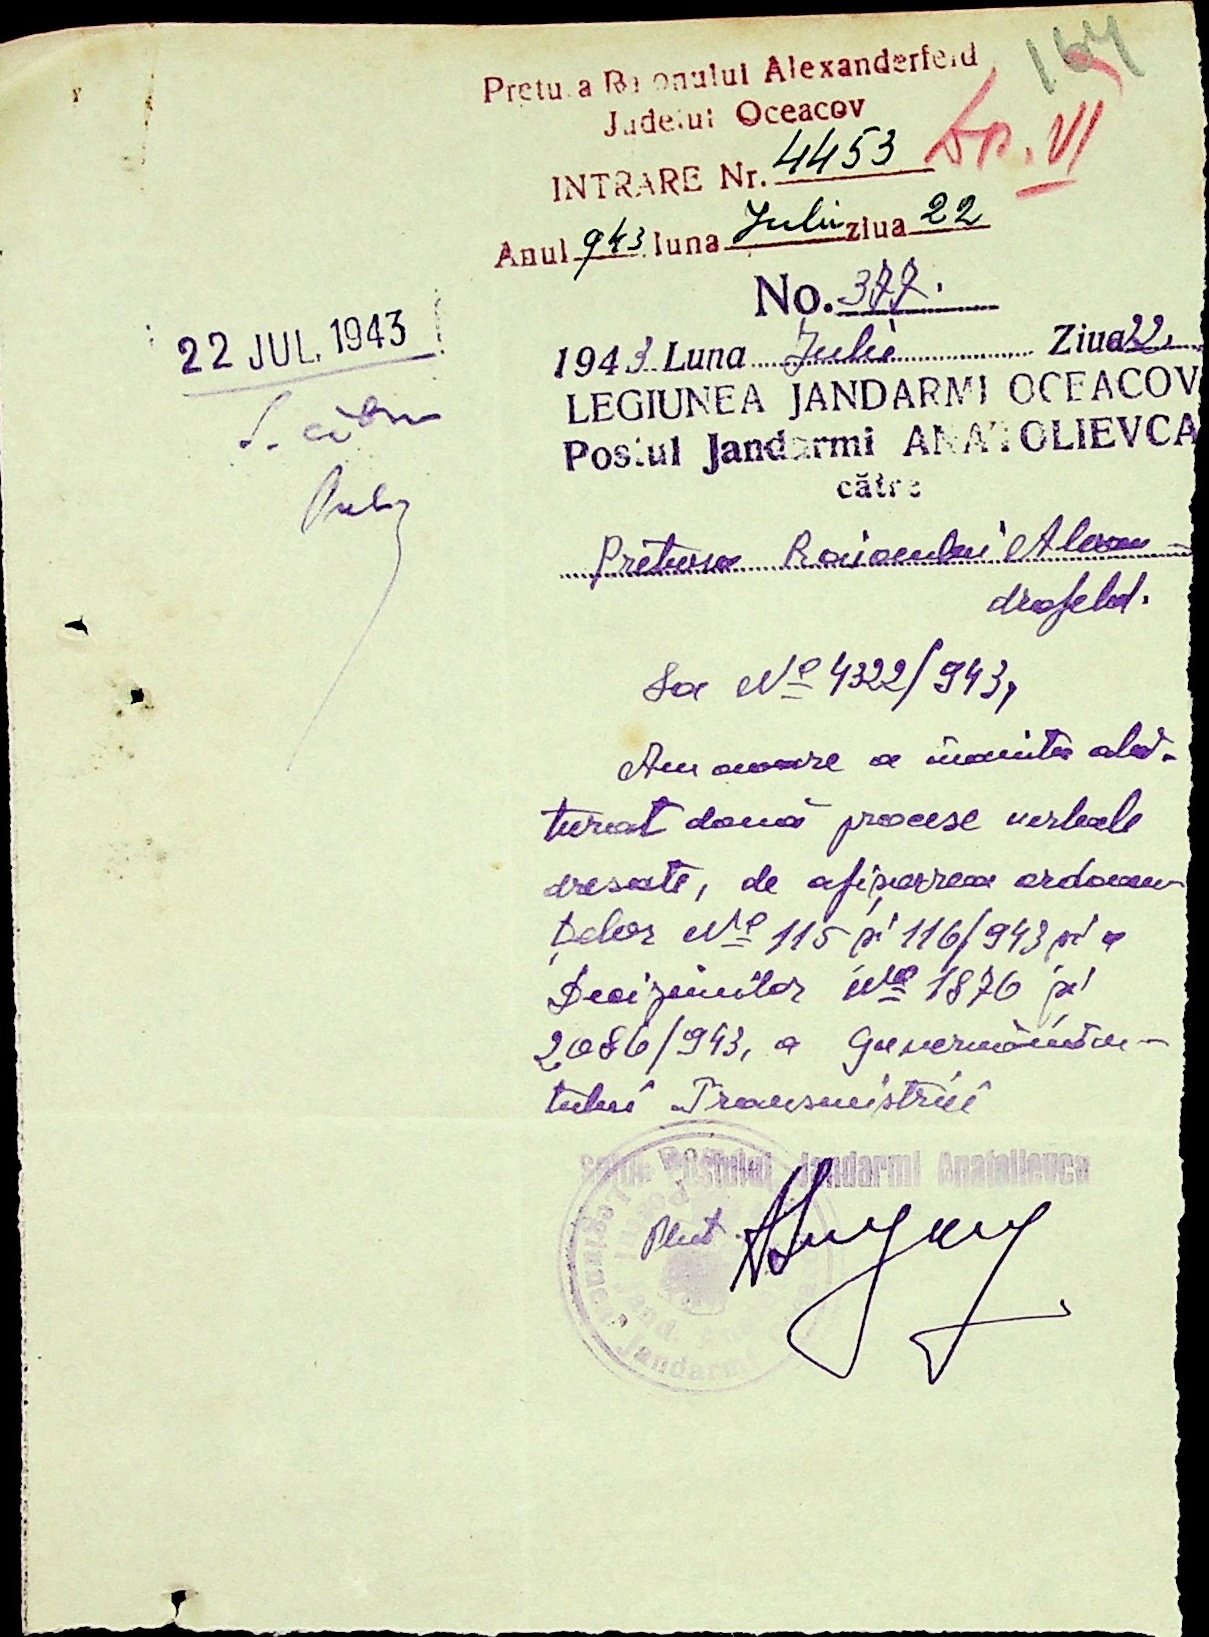 164
Pretura Raionului Alexanderfeld
Județul Oceacov
INTRARE Nr. 4453
Anul 943 luna Iulie ziua 22
No. 377.
22 JUL. 1943
1943 Luna Iulie Ziua 22.
LEGIUNEA JANDARMI OCEACOV
Postul Jandarmi ANATOLIEVCA
către
Pretura Raionului Alexan-
drofeld.
La No 4322/943,
Am onoare a înainta ală-
turat două procese verbale
dresate, de afișarea ordonan-
țelor No 115 și 116/943 și a
Deciziunilor No 1876 și
2086/943, a Guvernămân-
tului Transnistriei
Șeful Postului Jandarmi Anatolievca
Plut.